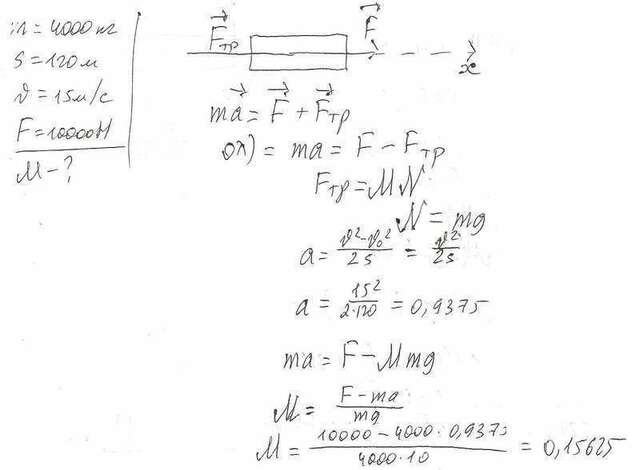 m = 4000 кг
S = 120 м
υ = 15 м/с
F = 10000 Н
M - ?
Fтр F
x
ma = F + Fтр
ох) = ma = F - Fтр
Fтр = MN
N = mg
a = υ²-υ₀²/2s = υ²/2s
a = 15²/2·120 = 0,9375
ma = F - Mmg
M = F - ma/mg
M = 10000 - 4000·0,9375/4000·10 = 0,15625